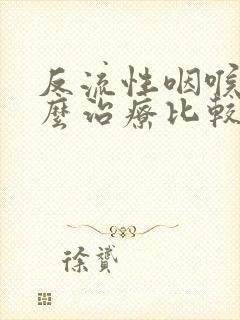 反流性咽喉
麼治療比較
徐贇